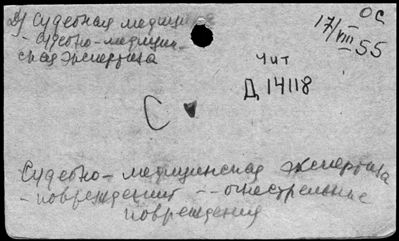 Д) Судебная медицина
ОС
- судебно-медицин-
17/VIII 55
ская экспертиза
Чит
Д 14118
С
Судебно-медицинская экспертиза
- повреждений -- огнестрельные
повреждения